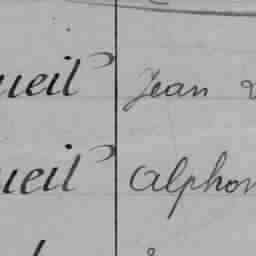 ueil Jean
ueil Alphon